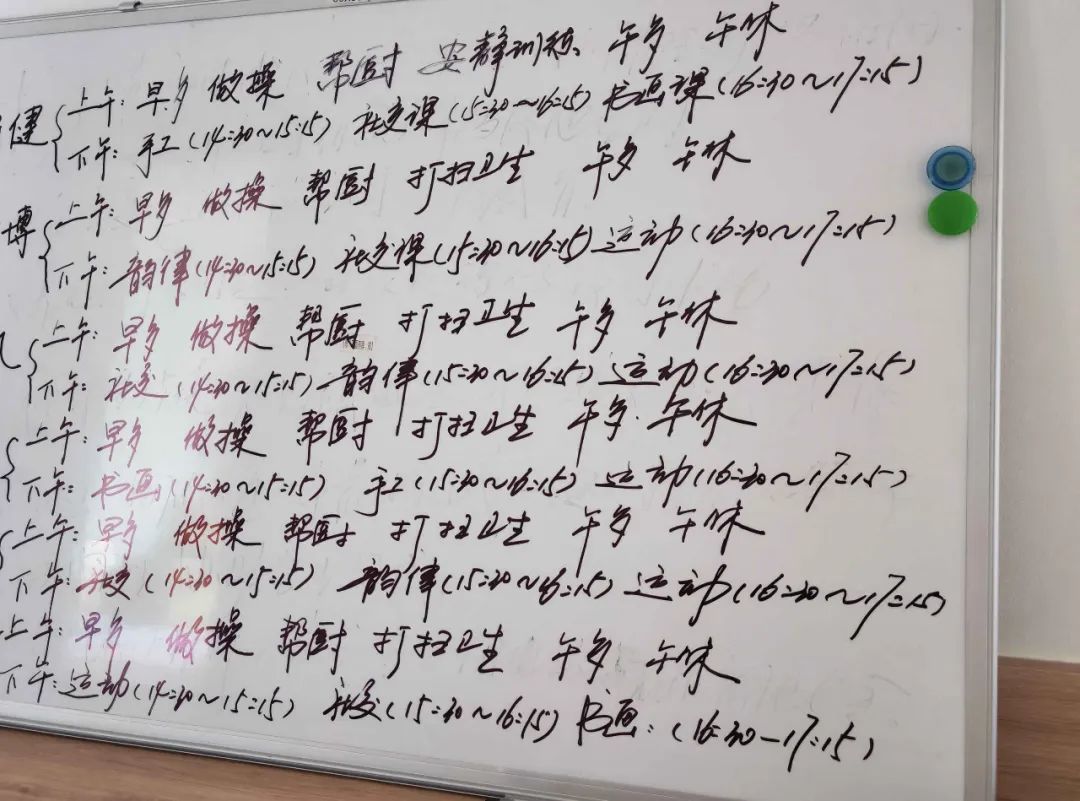 健 { 上午: 早多 做操 帮厨 安静训练 午多 午休
下午: 手工 (14:30~15:15) 社交课 (15:30~16:15) 书画课 (16:30~17:15)
博 { 上午: 早多 做操 帮厨 打扫卫生 午多 午休
下午: 韵律 (14:30~15:15) 社交课 (15:30~16:15) 运动 (16:30~17:15)
{ 上午: 早多 做操 帮厨 打扫卫生 午多 午休
下午: 社交 (14:30~15:15) 韵律 (15:30~16:15) 运动 (16:30~17:15)
{ 上午: 早多 做操 帮厨 打扫卫生 午多 午休
下午: 书画 (14:30~15:15) 手工 (15:30~16:15) 运动 (16:30~17:15)
{ 上午: 早多 做操 帮厨 打扫卫生 午多 午休
下午: 社交 (14:30~15:15) 韵律 (15:30~16:15) 运动 (16:30~17:15)
上午: 早多 做操 帮厨 打扫卫生 午多 午休
下午: 运动 (14:30~15:15) 社交 (15:30~16:15) 书画: (16:30-17:15)